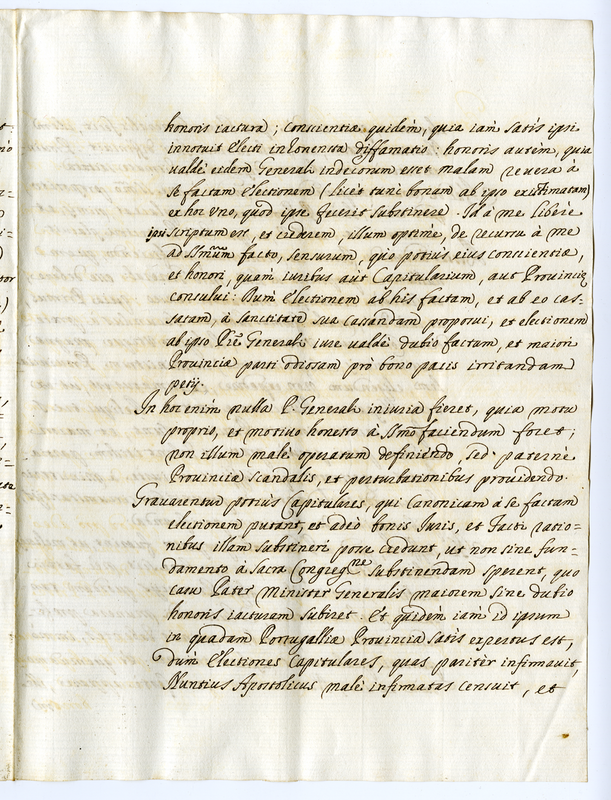 honoris iactura; Conscientiæ quidém, quia iam satis ipsi
innotuit Electi inhonesta diffamatio: honoris autém, quia
valdè eidem Generali indecorum esset malam revera à
se factam electionem (licèt tunc bonam ab ipso existimatam)
ex hoc vno, quod ipse fecerit substinere. Id à me liberè
ipsi scriptum est, et crederem, illum optimè, de recursu à me
ad SSmum facto, sensurum, quo potius eius conscientiæ,
et honori, quam iuribus aut Capitularium, aut Provinciæ
consului: Dum Electionem ab his factam, et ab eo cas-
satam, à sanctitate sua Cassandam proposui, et electionem
ab ipso Pre Generali iure valdè dubio factam, et maiori
Provinciæ parti odiosam prò bono pacis irritandam
petij.
In hoc enim nulla P. Generali iniuria fieret, quia motu
proprio, et motivo honesto à SSmo faciendum foret;
non illum malè operatum definiendo, sed paternè
Provinciæ scandalis, et perturbationibus providendo.
Gravarentur potius Capitulares, qui Canonicam à se factam
electionem putant, et adeò bonis Iuris, et Facti ratio=
nibus illam substineri posse credunt, ut non sine fun-
damento à Sacra Congregne substinendam sperent, quo
casu Pater Minister Generalis maiorem sine dubio
honoris iacturam subiret. Et quidém iam id ipsum
in quadam Portugalliæ Provincia satis expertus est,
dum Electiones Capitulares, quas paritèr infirmavit,
Nuntius Apostolicus malè infirmatas censuit, et